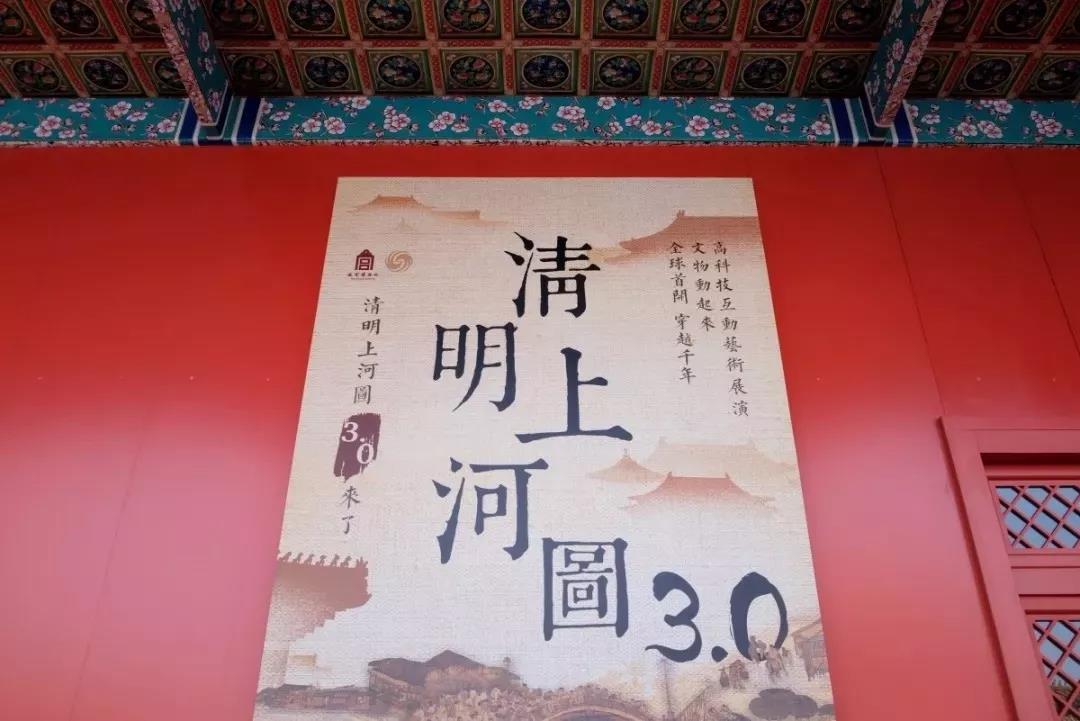 清明上河圖3.0
高科技互動藝術展演
文物動起來
全球首開 穿越千年
宮
故宮博物院
清明上河圖
3.0
來了